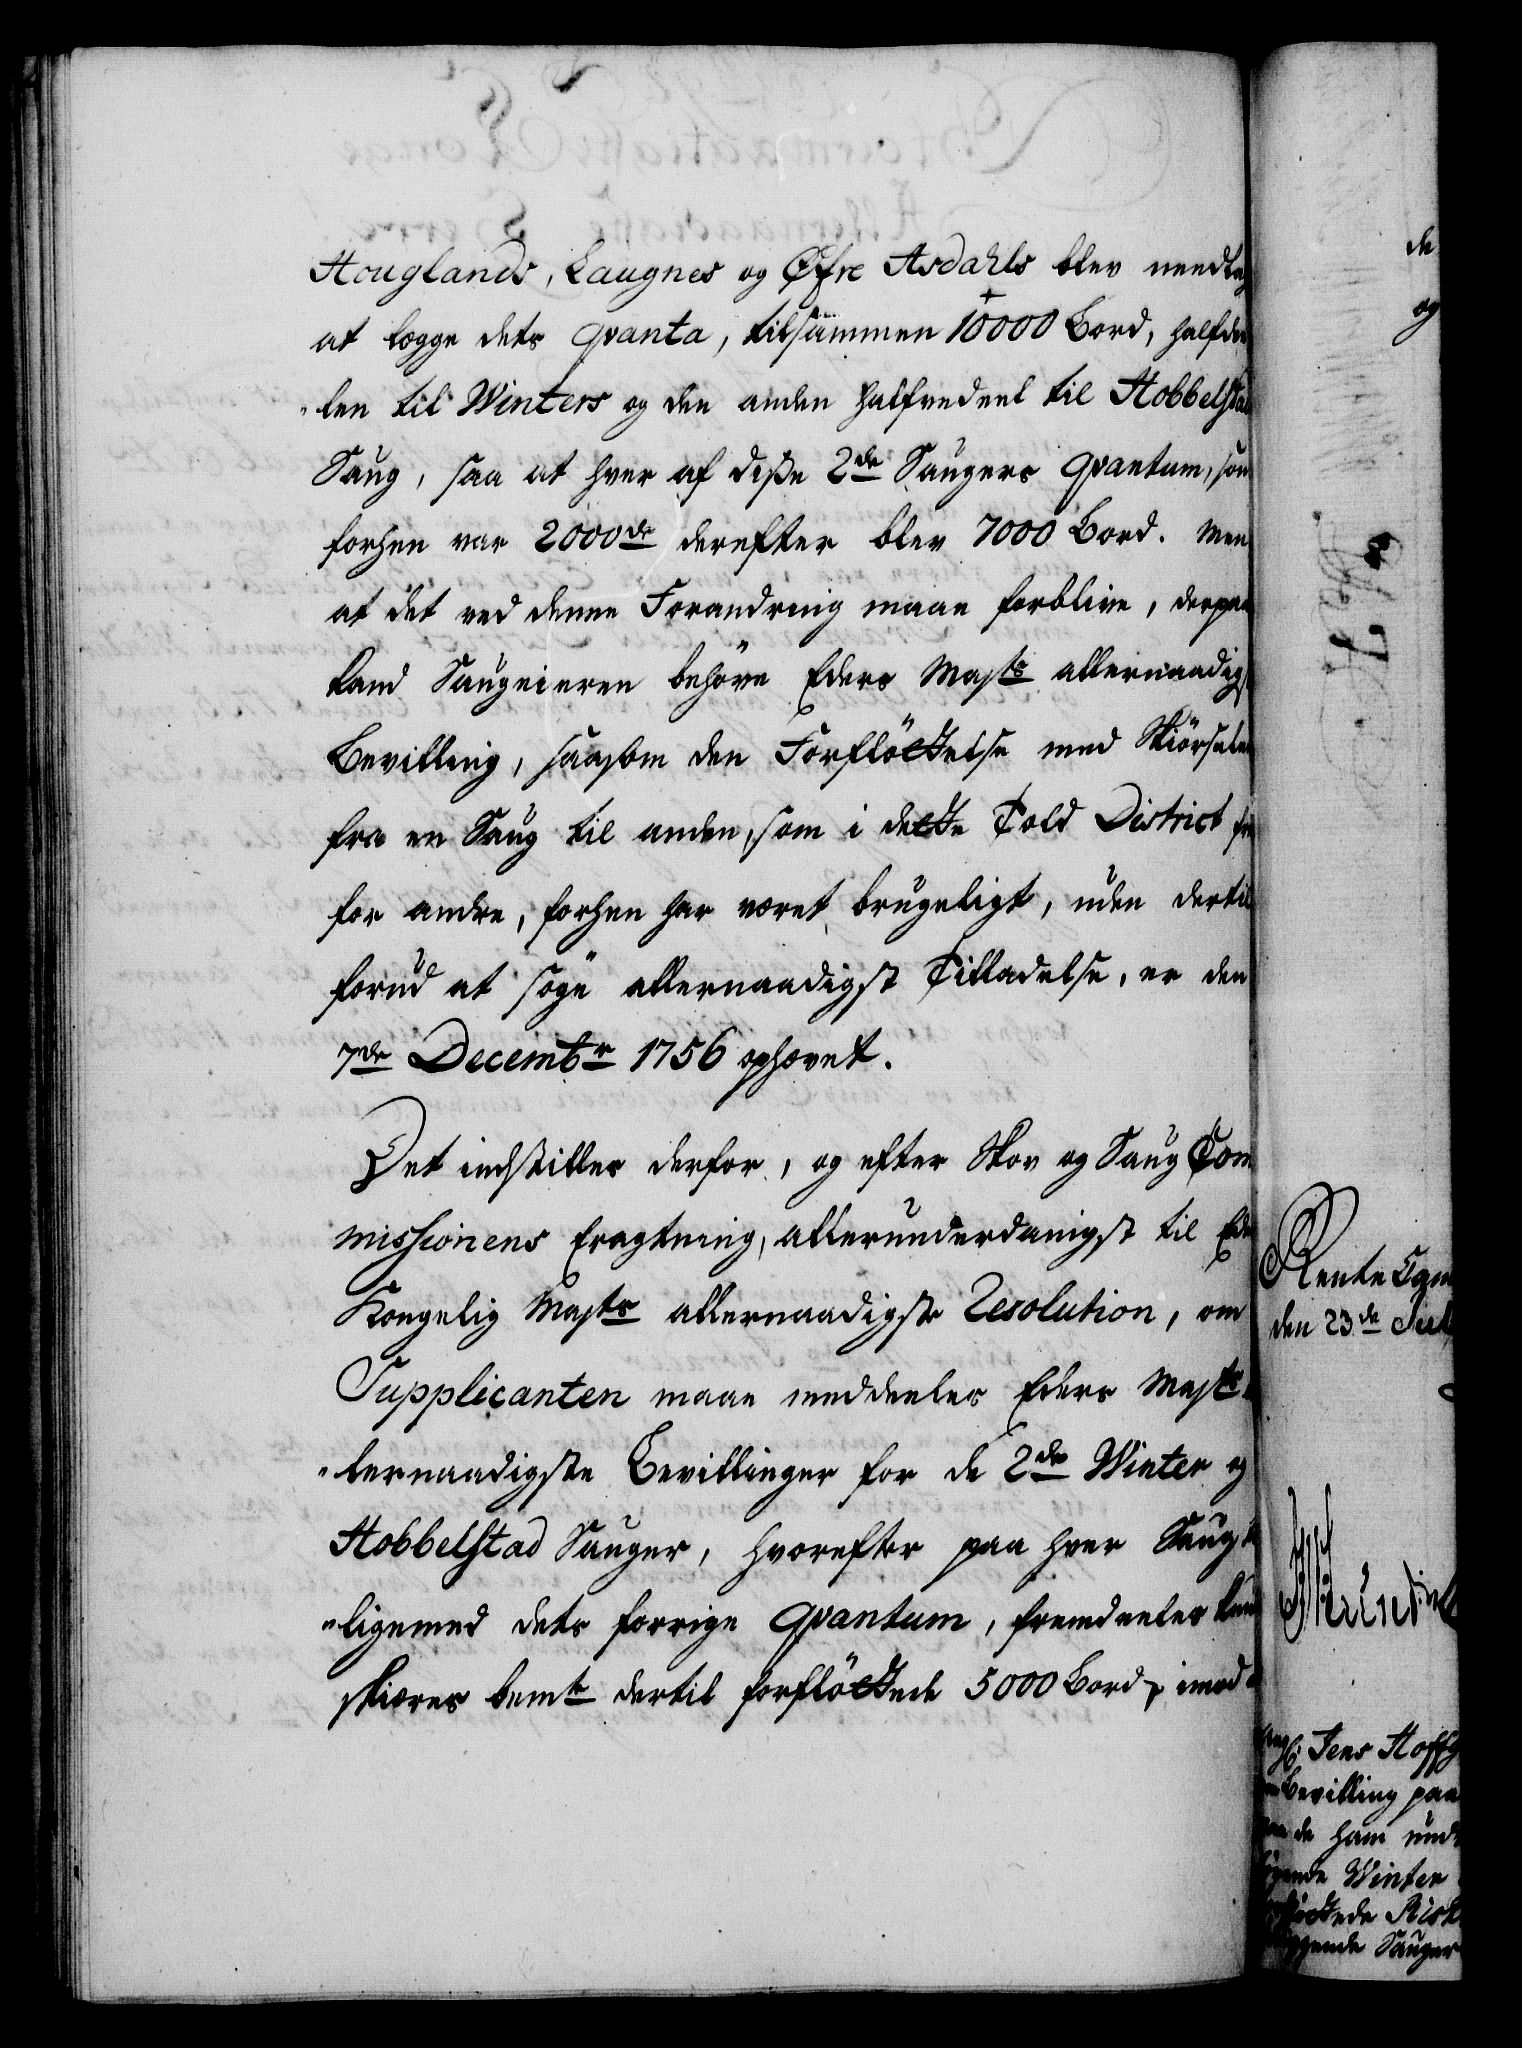 Houglands, Laugnes og Øfre Asdahls blev needlag
at lægge dets qvanta, tilsammen 10000 Bord, halfdee
„len til Winters og den anden halfvedeel til Hobbelstad
Saug, saa at hver af disse 2de Saugers qvantum, som
forhen var 2000de derefter blev 7000 Bord. Men
at det ved denne Forandring maae forblive, derpaa
land Saugeieren behøve Eders Mayts allernaadigst
Bevilling, saasom den Forfløttelse med Skiørselen
fra en Saug til anden, som i dette Told District frem
for andre, forhen har været brugeligt, uden dertil
forud at søge allernaadigst Tilladelse, er den
7de Decembr 1756 ophævet.
Det indstilles derfor, og efter Skov og Saug Com
missionens Eragtning, allerunderdanigst til Ede
Kongelig Mayts allernaadigste Resolution, om
Supplicanten maae meddeeles Eders Mayts
„lernaadigste Bevillinger for de 2de Winter og
Hobbelstad Sauger, hvorefter paa hver Saug
„ligemed dets forrige qvantum, fremdeeles kand
skiæres bemte dertil forfløttede 5000 Bord, imod
de
og
Rente
den 23de Jul
Jens Hoffg
Bevilling paa
de ham und
Winter
Sauger